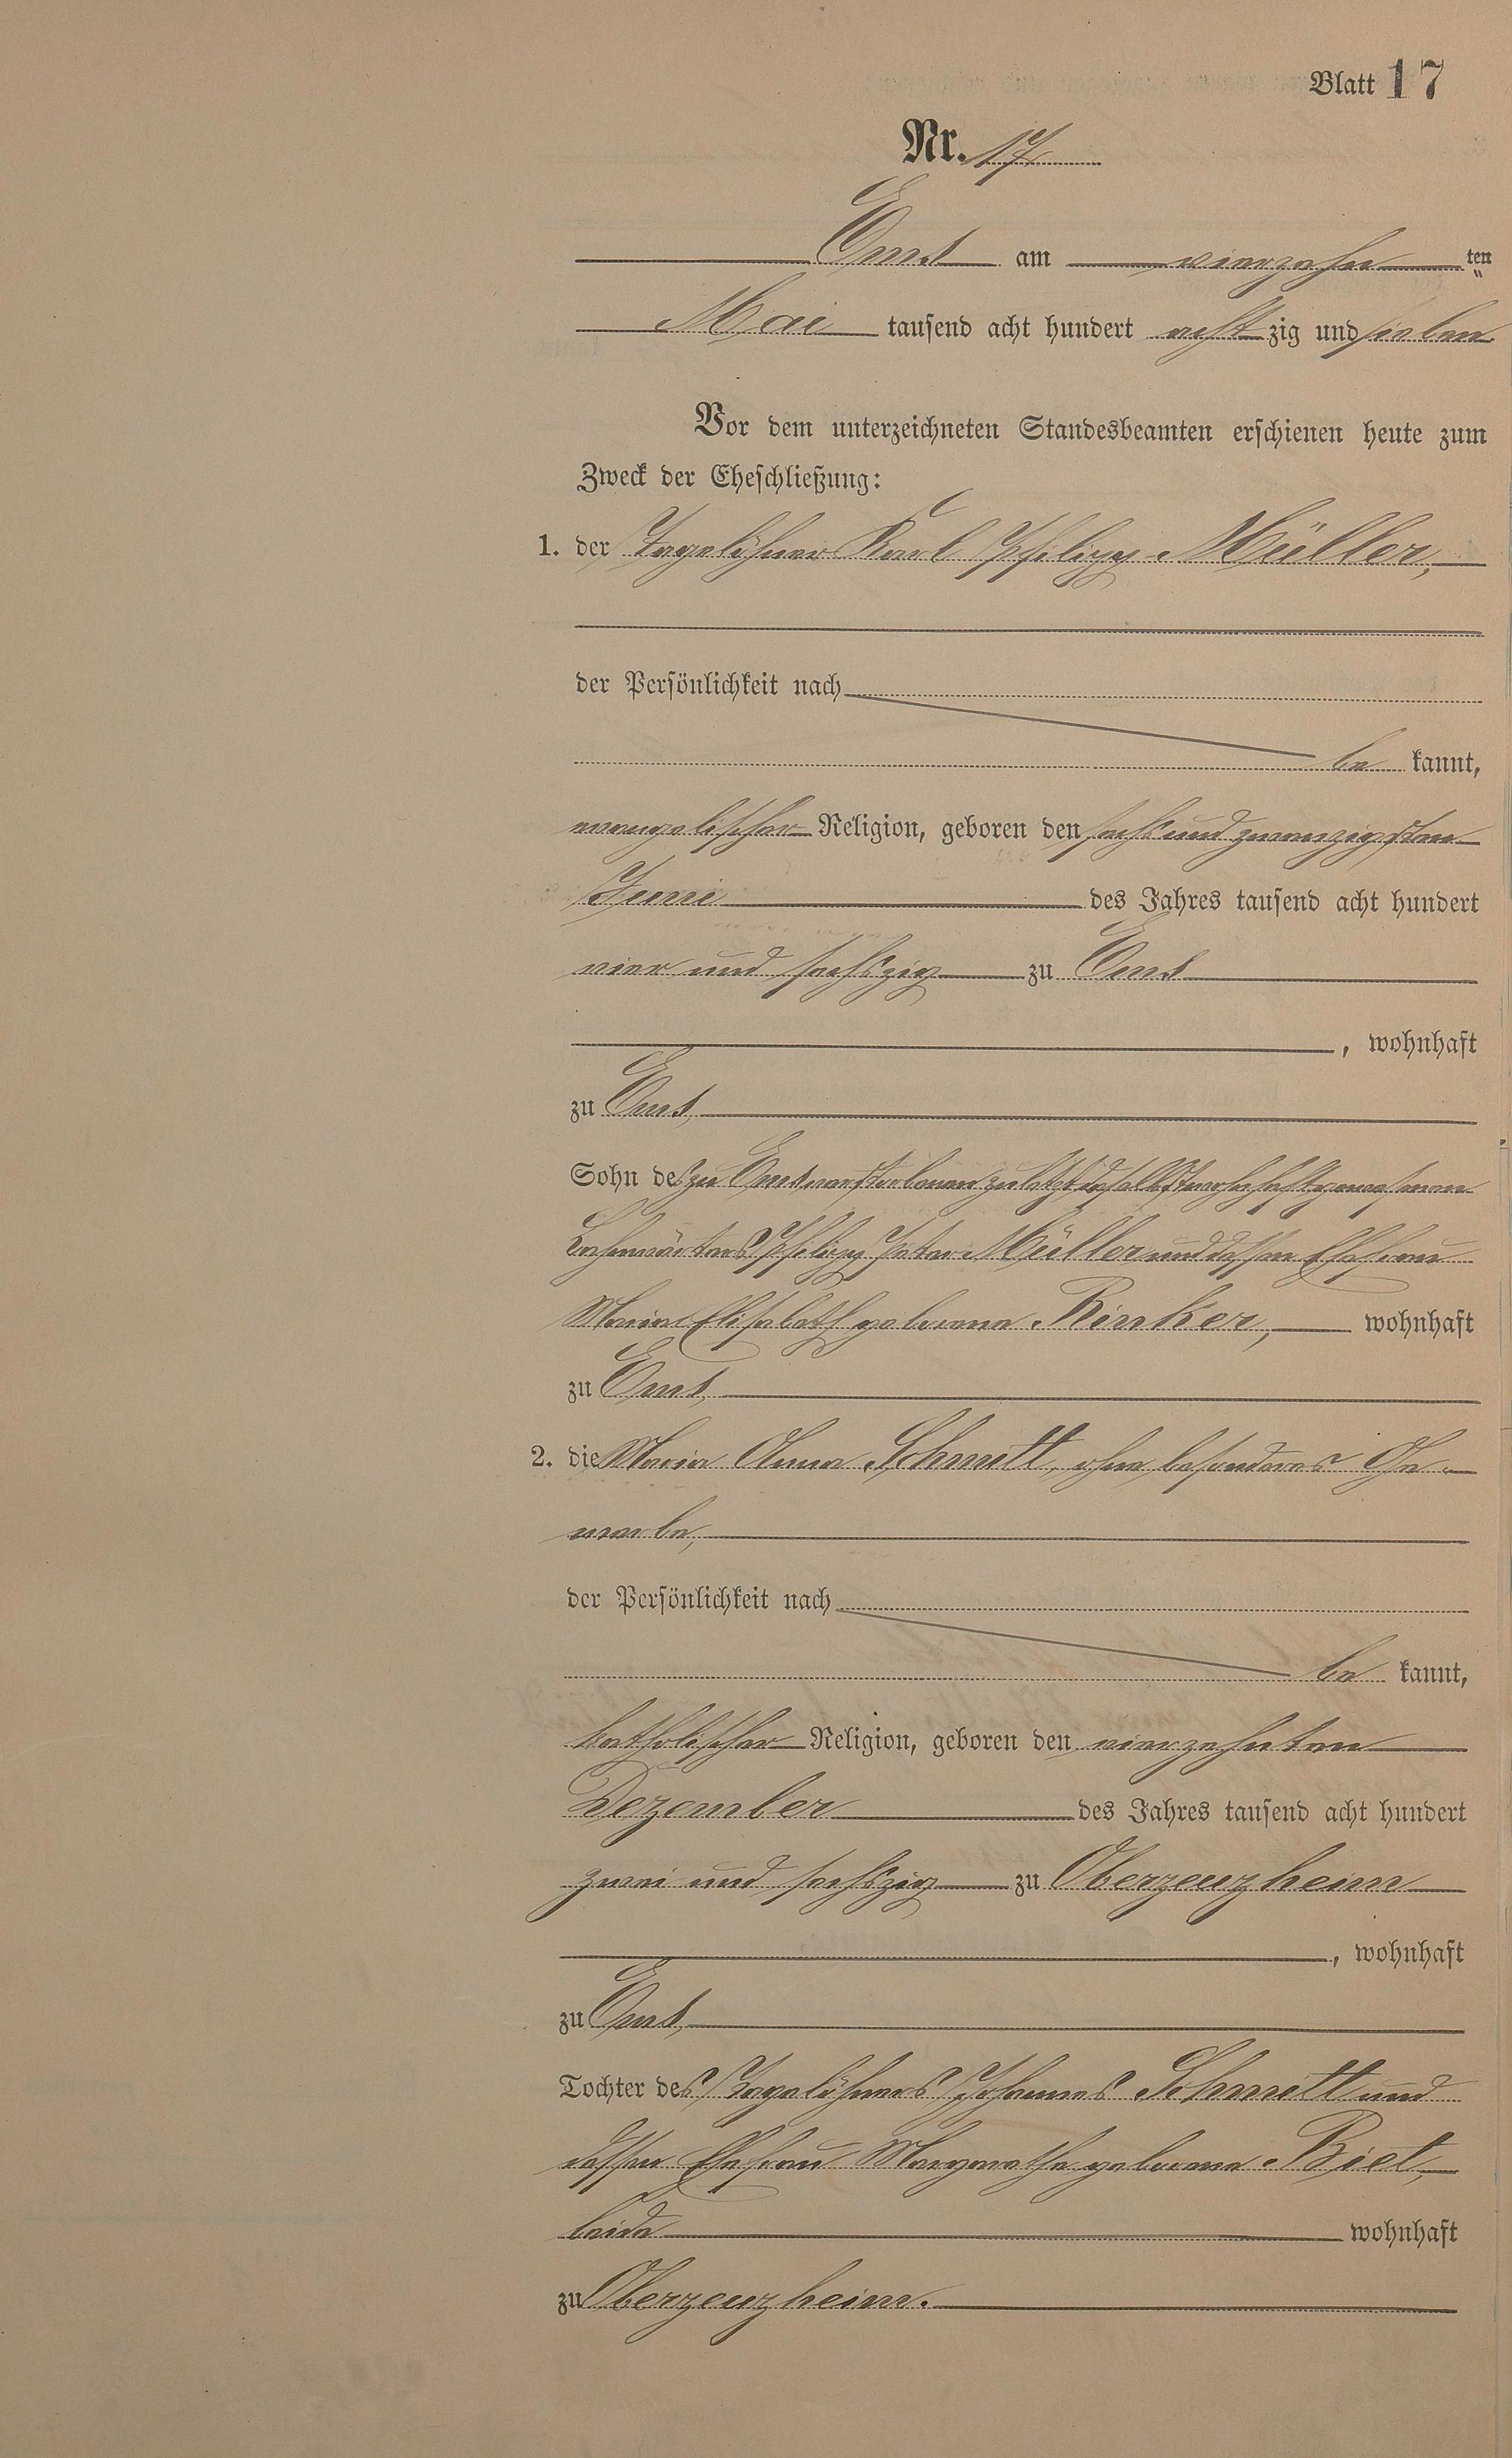 Blatt 17
Nr. 17
Ems am vierzehn ten
Mai tausend acht hundert acht zig und sieben
Vor dem unterzeichneten Standesbeamten erschienen heute zum
Zweck der Eheschließung:
1. der Tagelöhner Karl Philipp Müller,
der Persönlichkeit nach
be kannt,
evangelischer Religion, geboren den sechs und zwanzigsten
Juni des Jahres tausend acht hundert
vier und sechszig zu Ems
, wohnhaft
zu Ems,
Sohn des zu Ems verstorbenen zuletzt daselbst wohnhaft gewesenen
Philipp Peter Müller und dessen Ehefrau
Maria Elisabeth geborene Rinker, wohnhaft
zu Ems,
2. die Maria Anna Schmitt, ohne besonderes Ge-
werbe,
der Persönlichkeit nach
be kannt,
katholischer Religion, geboren den vierzehnten
Dezember des Jahres tausend acht hundert
zwei und sechszig zu Oberzeuzheim
, wohnhaft
zu Ems,
Tochter des Tagelöhners Johannes Schmitt und
dessen Ehefrau Margarethe geborene
beide wohnhaft
zu Oberzeuzheim.